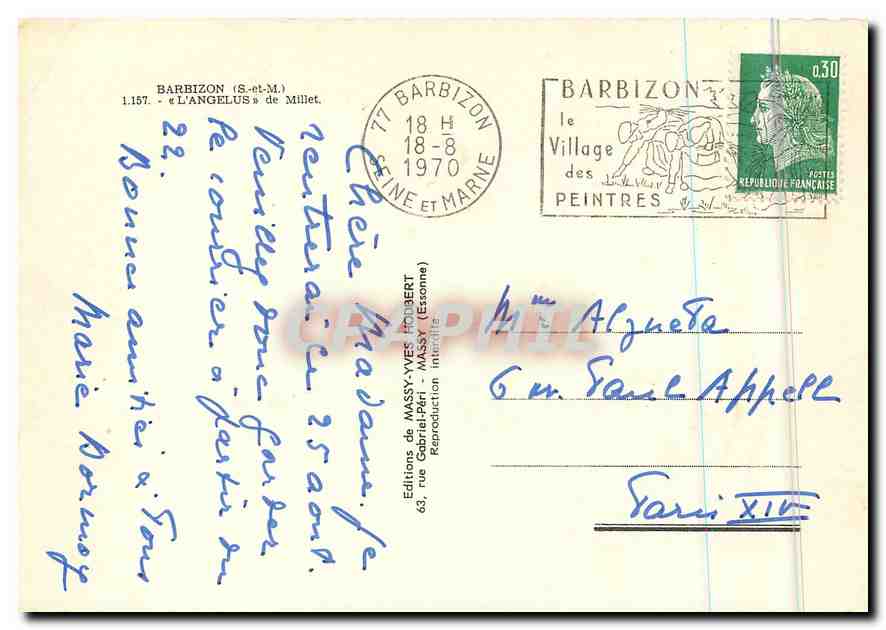 BARBIZON (S.-et-M.)
1.157. - « L'ANGELUS » de Millet.
77 BARBIZON
18 H
18-8
1970
SEINE ET MARNE
BARBIZON
le
Village
des
PEINTRES
0,30
POSTES
REPUBLIQUE FRANÇAISE
Chère Madame. Je
rentrerai le 25 août.
Veuillez donc garder
le courrier à partir du
22.
Bonnes amitiés à Tous
Marie Dormoy
Editions de MASSY-YVES HODBERT
63, rue Gabriel-Péri - MASSY (Essonne)
Reproduction interdite
CPAPHIL
Mme Alzueta
6 Paul Appell
Paris XIV